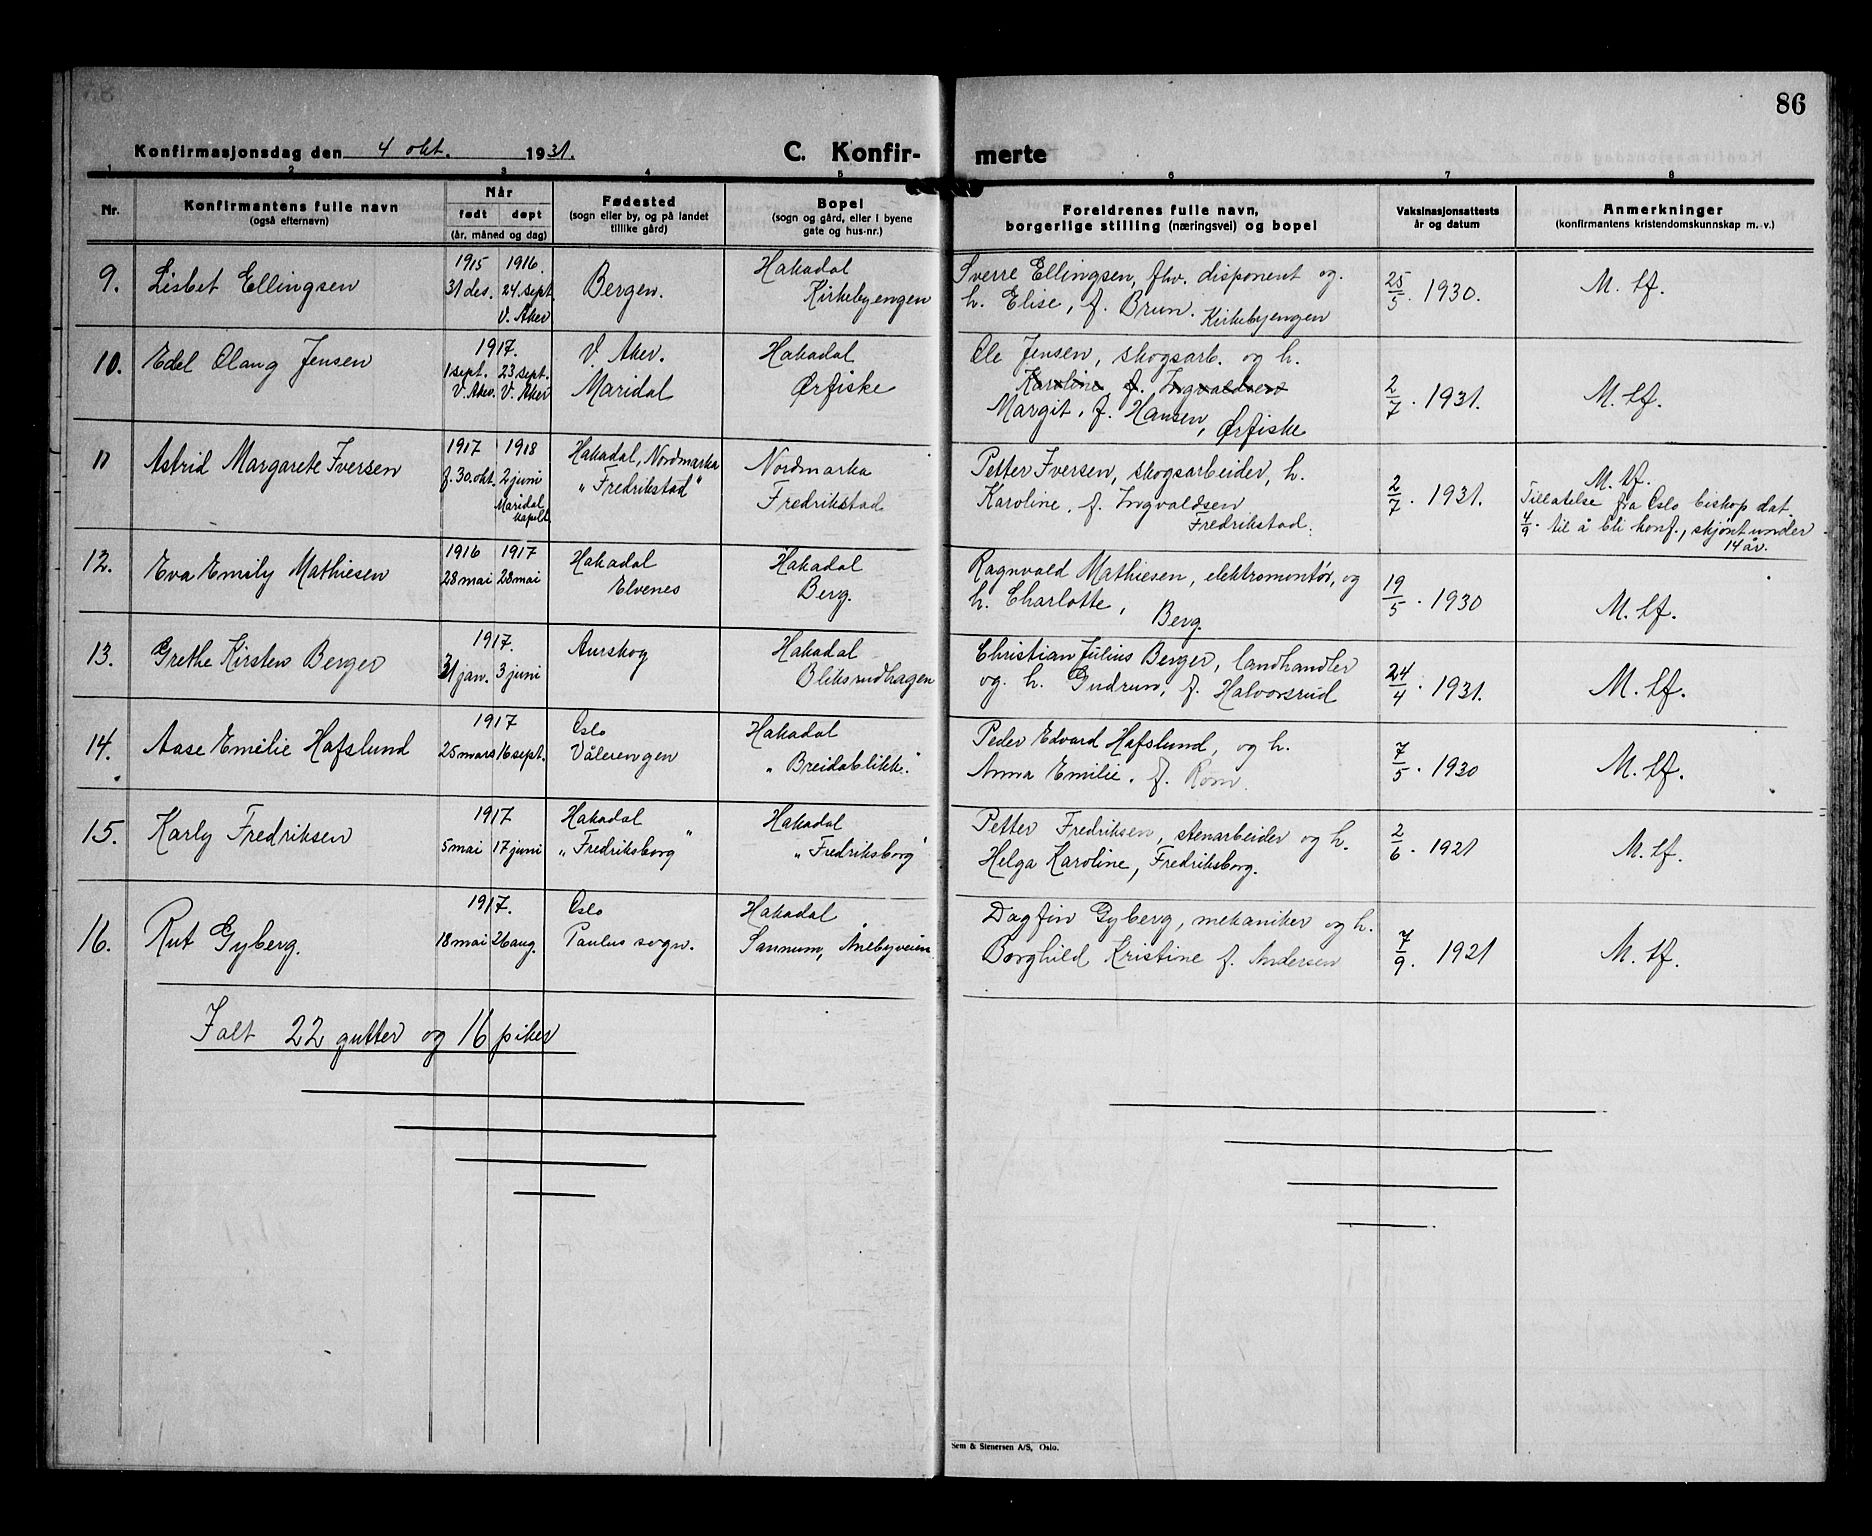 86
Konfirmasjonsdag den 4 okt. 1931.
C. Konfir- merte
1 2 3 4 5 6 7 8
Nr.
Konfirmantens fulle navn
(også efternavn)
Når
født døpt
(år, måned og dag)
Fødested
(sogn eller by, og på landet
tillike gård)
Bopel
(sogn og gård, eller i byene
gate og hus-nr.)
Foreldrenes fulle navn,
borgerlige stilling (næringsvei) og bopel
Vaksinasjonsattests
år og datum
Anmerkninger
(konfirmantens kristendomskunnskap m. v.)
9. Lisbet Ellingsen
1915 1916.
31 des. 24 sept.
V. Aker
Bergen.
Hakadal
Kirkebyengen
Sverre Ellingsen, fhv. disponent og
h. Elise, f. Brun. Kirkebyengen
25/5. 1930.
M. tf.
10. Edel Olaug Jensen
1917.
1 sept. 23 sept.
V. Aker. V. Aker
V. Aker.
Maridal
Hakadal
Ørfiske
Ole Jensen, skogsarb. og h.
Karoline f. Ingvaldsen
Margit, f. Hansen, Ørfiske
2/7. 1931.
M. tf.
11 Astrid Margarete Iversen
1917 1918
f. 30. okt. 2 juni
Maridal
kapell
Hakadal, Nordmarka
"Fredrikstad"
Nordmarka
Fredrikstad
Petter Iversen, skogsarbeider, h.
Karoline, f. Ingvaldsen
Fredrikstad.
2/7. 1931.
M. tf.
Tillatelse fra Oslo biskop dat.
4/9. til å bli konf., skjønt under
14 år.
12. Eva Emily Mathiesen
1916 1917
28 mai 28 mai
Hakadal
Elvenes
Hakadal
Berg.
Ragnvald Mathiesen, elektromontør, og
h. Charlotte,
Berg.
19/5. 1930
M. tf.
13. Grethe Kirsten Berger
1917.
31 jan. 3 juni
Aurskog
Hakadal
Bliksrudhagen
Christian Julius Berger, landhandler
og h. Gudrun, f. Halvorsrud
24/4. 1931.
M. tf.
14. Aase Emilie Hafslund
1917
25 mars 16 sept.
Oslo
Vålerengen
Hakadal
"Breidablikk".
Peder Edvard Hafslund, og h.
Anna Emilie, f. Rom.
7/5. 1930
M. tf.
15. Karly Fredriksen
1917
5 mai 17 juni
Hakadal
"Fredriksborg"
Hakadal
"Fredriksborg"
Petter Fredriksen, stenarbeider og h.
Helga Karoline, Fredriksborg.
2/6. 1921
M. tf.
16. Rut Gyberg.
1917.
18 mai 26 aug.
Oslo
Paulus sogn.
Hakadal
Sannum, Ånebyveien
Dagfin Gyberg, mekaniker og h.
Borghild Kristine f. Andersen
7/9. 1921
M. tf.
I alt 22 gutter og 16 piker
Sem & Stenersen A/S, Oslo.